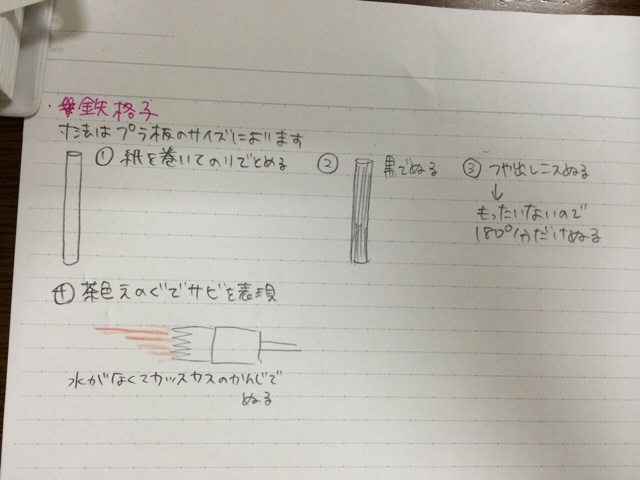 ・鉄格子
寸法はプラ板のサイズによります
① 紙を巻いてのりでとめる
② 黒でぬる
③ つや出しニスぬる
↓
もったいないので
180°分だけぬる
④ 茶色えのぐでサビを表現
水がなくてカッスカスのかんじで
ぬる